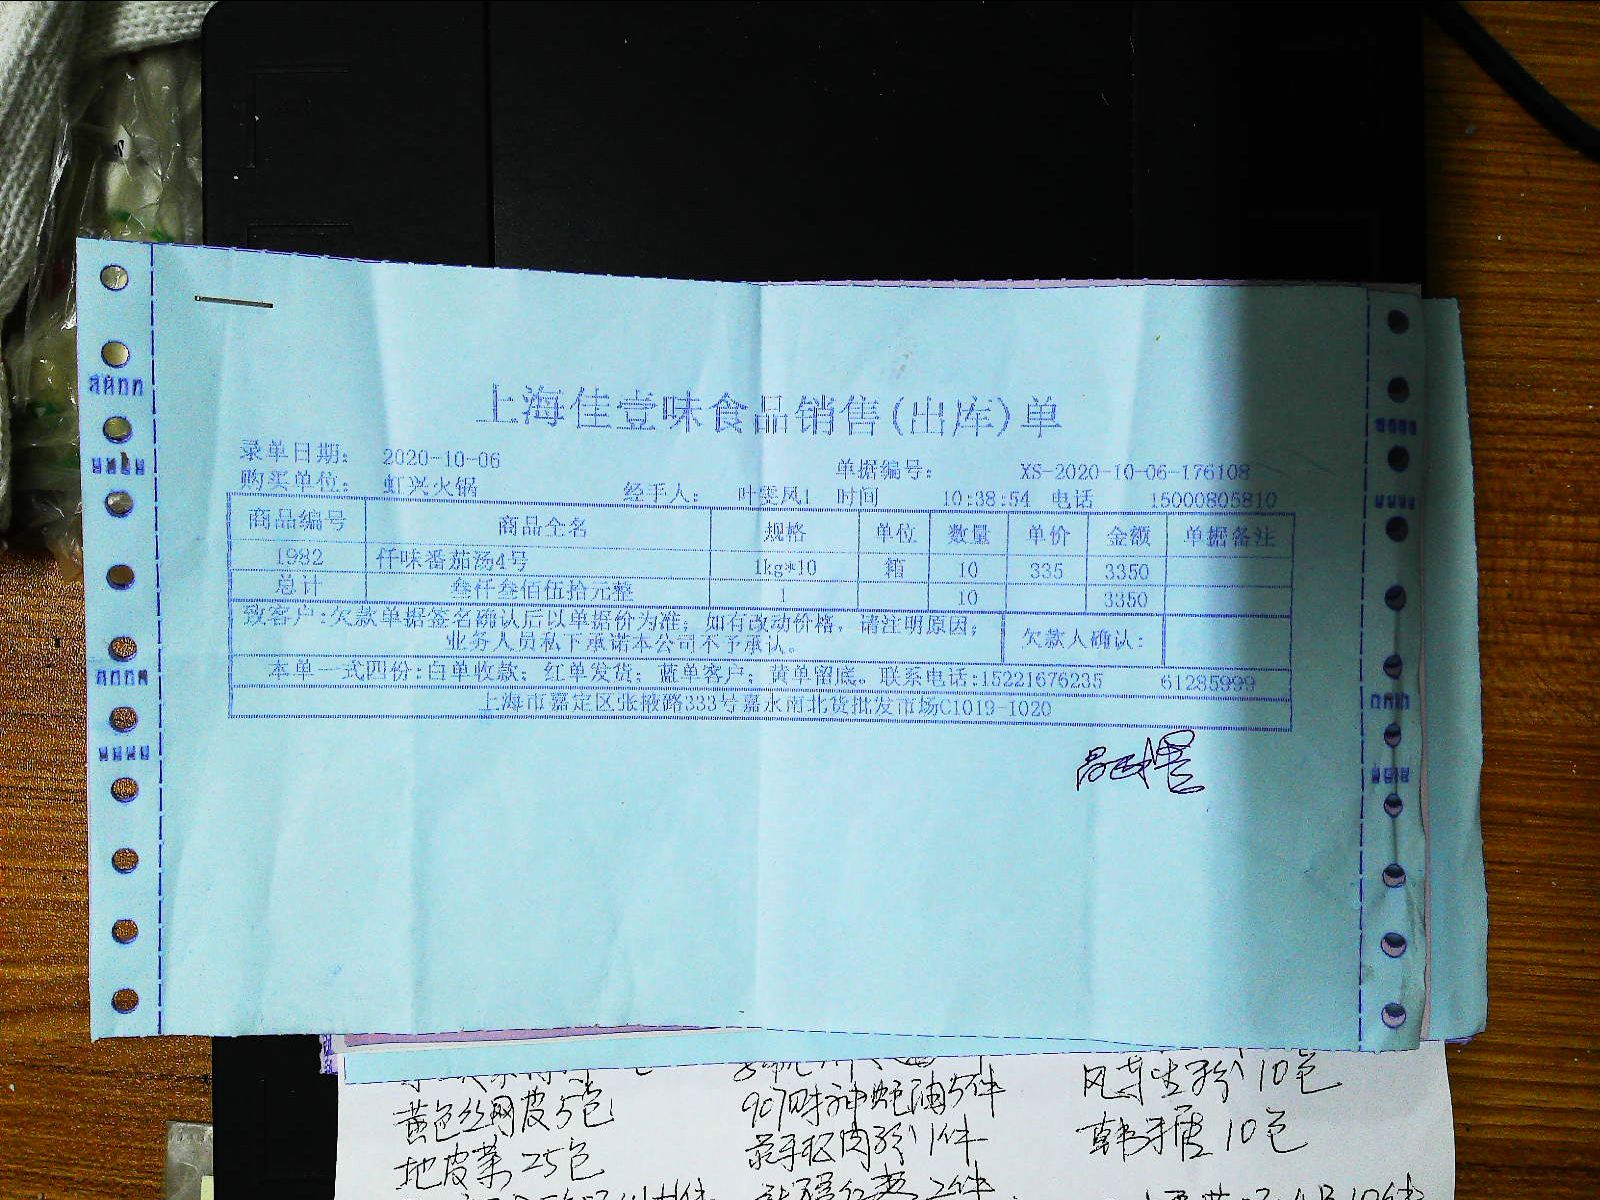 上海佳壹味食品销售(出库)单
录单日期： 2020-10-06 单据编号： XS-2020-10-06-176108
购买单位： 虹兴火锅 经手人： 叶雯凤1 时间 10:38:54 电话 15000805810
商品编号 商品全名 规格 单位 数量 单价 金额 单据备注
1982 仟味番茄汤4号 1kg*10 箱 10 335 3350
总计 叁仟叁佰伍拾元整 1 10 3350
致客户:欠款单据签名确认后以单据价为准；如有改动价格，请注明原因；
业务人员私下承诺本公司不予承认。 欠款人确认：
本单一式四份:白单收款；红单发货；蓝单客户；黄单留底。联系电话:15221676235 61285999
上海市嘉定区张掖路333号嘉永南北货批发市场C1019-1020
黄色丝网皮5包 907财神蚝油5件 风车生粉10包
地皮菜25包 1件 10包
2件